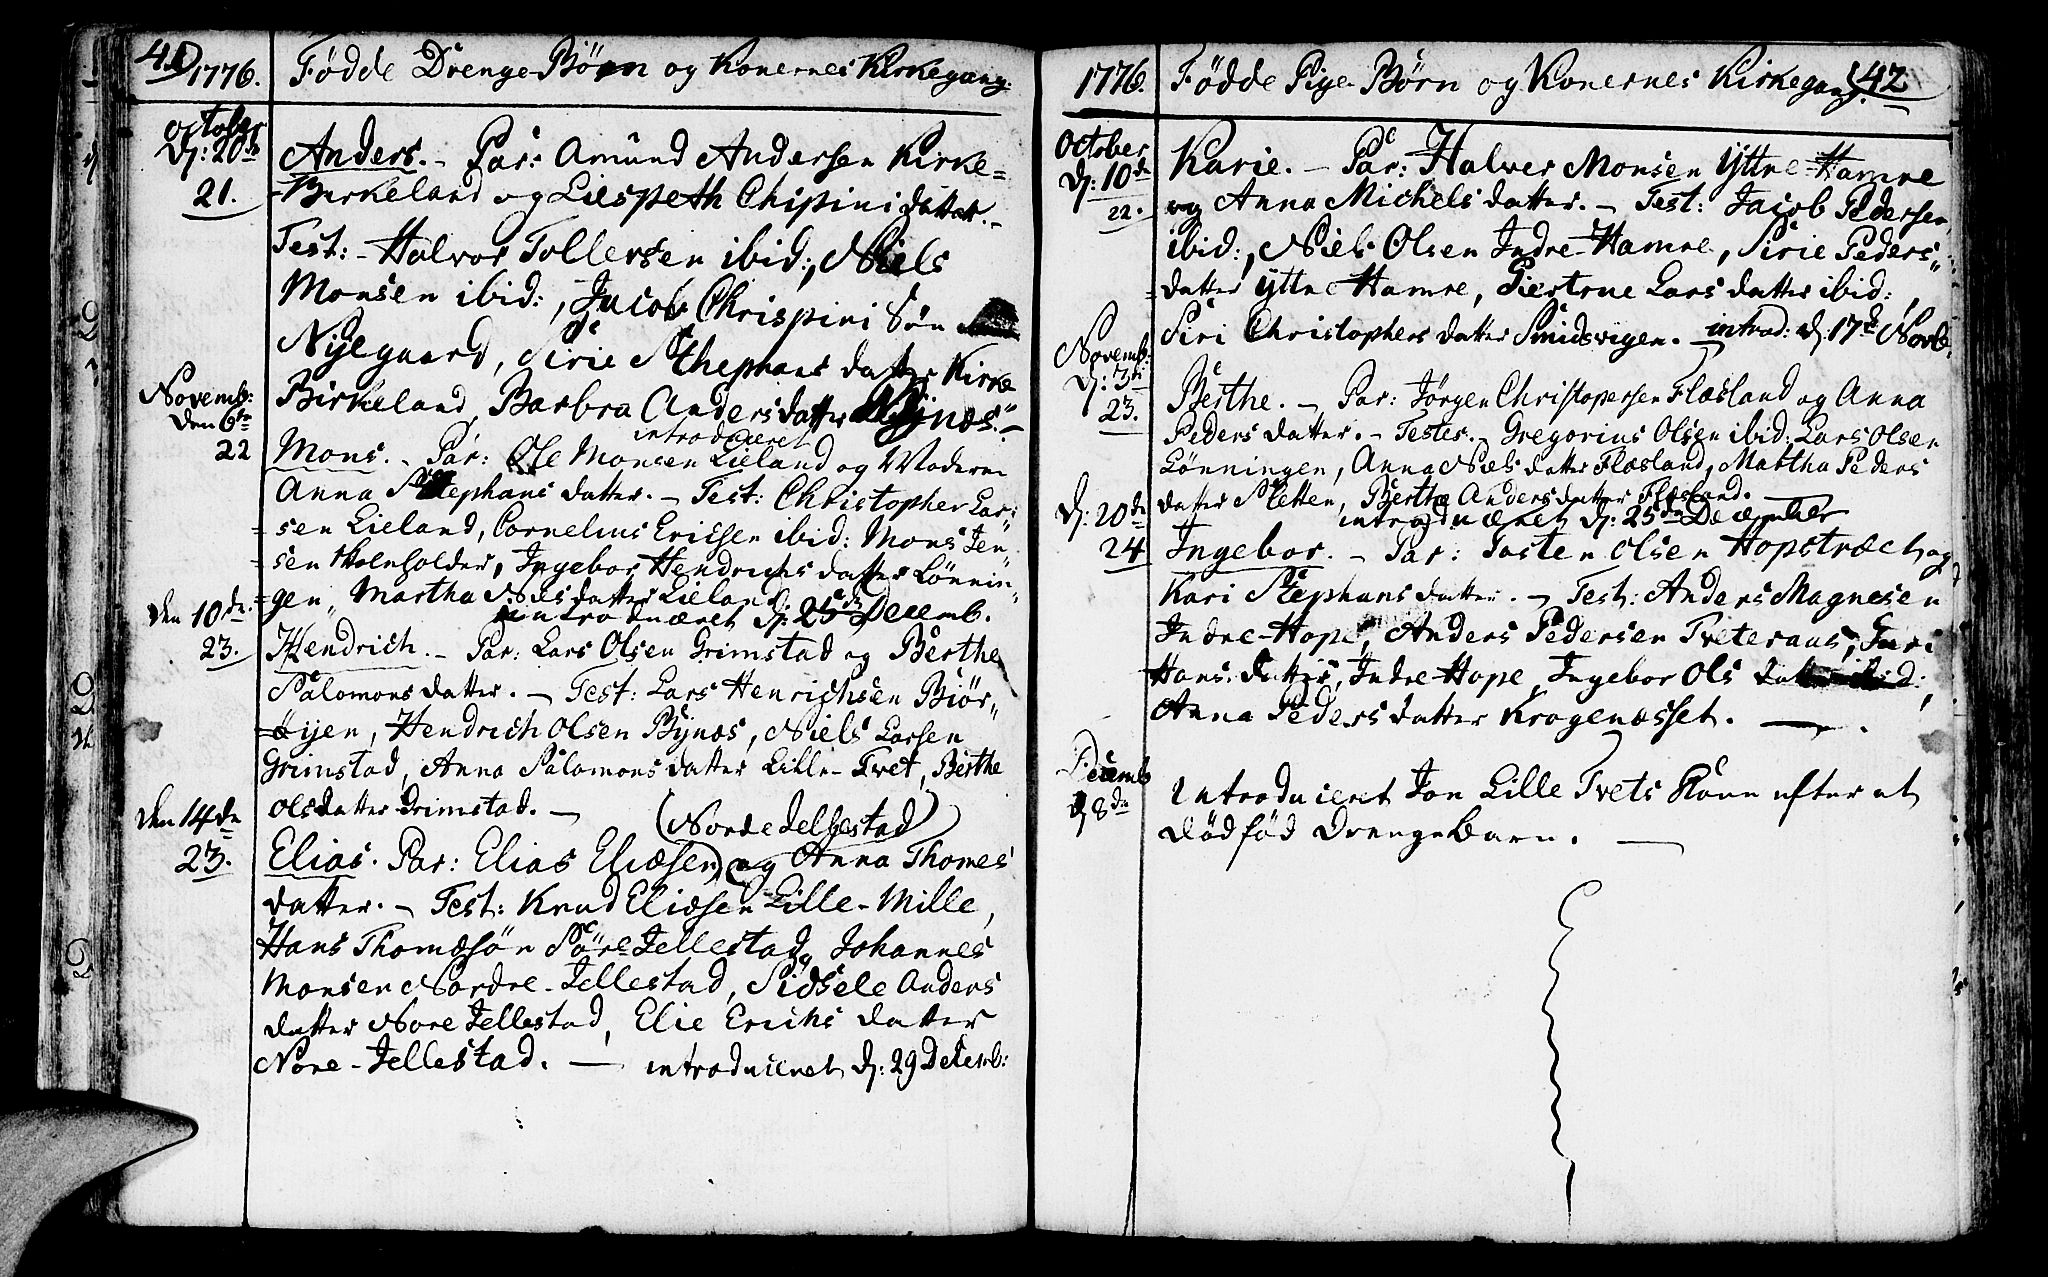 41
1776. Fødde Drenge-Børn og Konernes Kirkegang.
October
D: 20de
21.
Anders. - Par: Amund Andersen Kirke=
-Birkeland og Liespeth Chispini datter. -
Test: - Halvor Tollersen ibid:, Niels
Monsen ibid:, Jacob Chrispini Søn
Nyegaard, Sirie Stephans datter Kirke
Birkeland, Barbra Anders datter Bynæs. -
Novemb:
den 6te
22
introduceret
Mons. - Par: Ole Monsen Lieland og Moderen
Anna Stephans datter. - Test: Christopher Lar=
=sen Lieland, Cornelius Ericsen ibid: Mons Jen=
=sen Skeenholder, Ingebor Hendrichs datter Lønnin=
=gen, Martha Nils datter Lieland
introduceret d: 25de Decemb.
den 10de
23.
Hendrich. - Par: Lars Olsen Grimstad og Berthe
Salomons datter. - Test: Lars Henrichsen Biør=
=øijen, Hendrich Olsen Bynæs, Niels Larsen
Grimstad, Anna Salomons datter Lille-Tvet, Berthe
Olsdatter Grimstad. -
den 14de
23.
(Norde Jelgestad)
Elias. Par: Elias Eliæsen og Anna Thomes
datter. - Test: Knud Eliæsen Lille-Mille,
Hans Thomæsøn Søre Jellestad, Johannes
Monsen Nordre-Jellestad, Sidsele Anders
datter Nore Jellestad, Elie Erichs datter
Nore-Jellestad. - introduceret d: 29 Decemb:
1776. Fødde Pige-Børn og Konernes Kirkegang. 42
October
D: 10de
22.
Karie. - Par: Halver Monsen Yttre-Hamre
og Anna Michels datter. - Test: Jacob Pedersen
ibid:, Niels Olsen Indre-Hamre, Sirie Peders=
=datter Yttre Hamre, Giertrue Lars datter ibid:,
Siri Christophers datter Smidsvigen. - introd: d: 17de Novb.
Novemb:
D: 3de
23.
Berthe. - Par: Jørgen Christopersen Flæsland og Anna
Peders datter. - Testes. - Gregorius Olsen ibid: Lars Olsen
Lønningen, Anna Niels datter Flæsland, Martha Peders
datter Sletten, Berthe Anders datter Flæsland. -
introduceret d: 25de December
D: 20de
24
Ingebor. - Par: Tosten Olsen Hopstræch og
Kari Stephans datter. - Test: Anders Magnesen
Indre-Hope, Anders Pedersen Tveteraas, Guri
Hans datter, Indre-Hope, Ingebor Ols datter ibid:,
Anna Peders datter Krogenæsset. -
Decemb
d 8de
Introduceret Jon Lille Tvets Kone efter et
dødfød Drengebarn. -